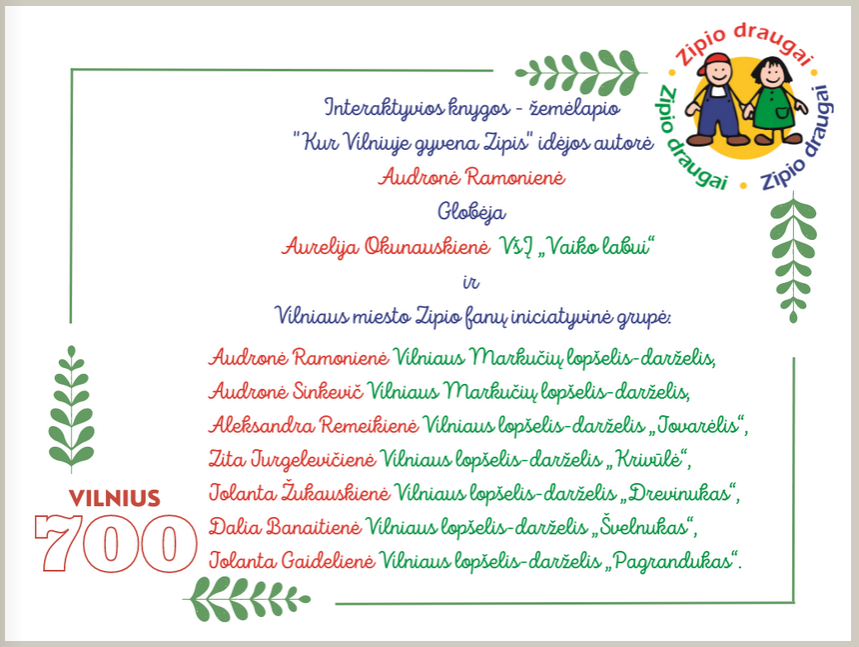 Zipio draugai
Zipio draugai
Zipio draugai
Interaktyvios knygos - žemėlapio
"Kur Vilniuje gyvena Zipis" idėjos autorė
Audronė Ramonienė
Globėja
Aurelija Okunauskienė VšĮ „Vaiko labui“
ir
Vilniaus miesto Zipio fanų iniciatyvinė grupė:
Audronė Ramonienė Vilniaus Markučių lopšelis-darželis,
Audronė Sinkevič Vilniaus Markučių lopšelis-darželis,
Aleksandra Remeikienė Vilniaus lopšelis-darželis „Tovarėlis“,
Zita Turgelevičienė Vilniaus lopšelis-darželis „Krivūlė“,
Jolanta Žukauskienė Vilniaus lopšelis-darželis „Drevinukas“,
Dalia Banaitienė Vilniaus lopšelis-darželis „Švelnukas“,
Jolanta Gaidelienė Vilniaus lopšelis-darželis „Pagrandukas“.
VILNIUS
700